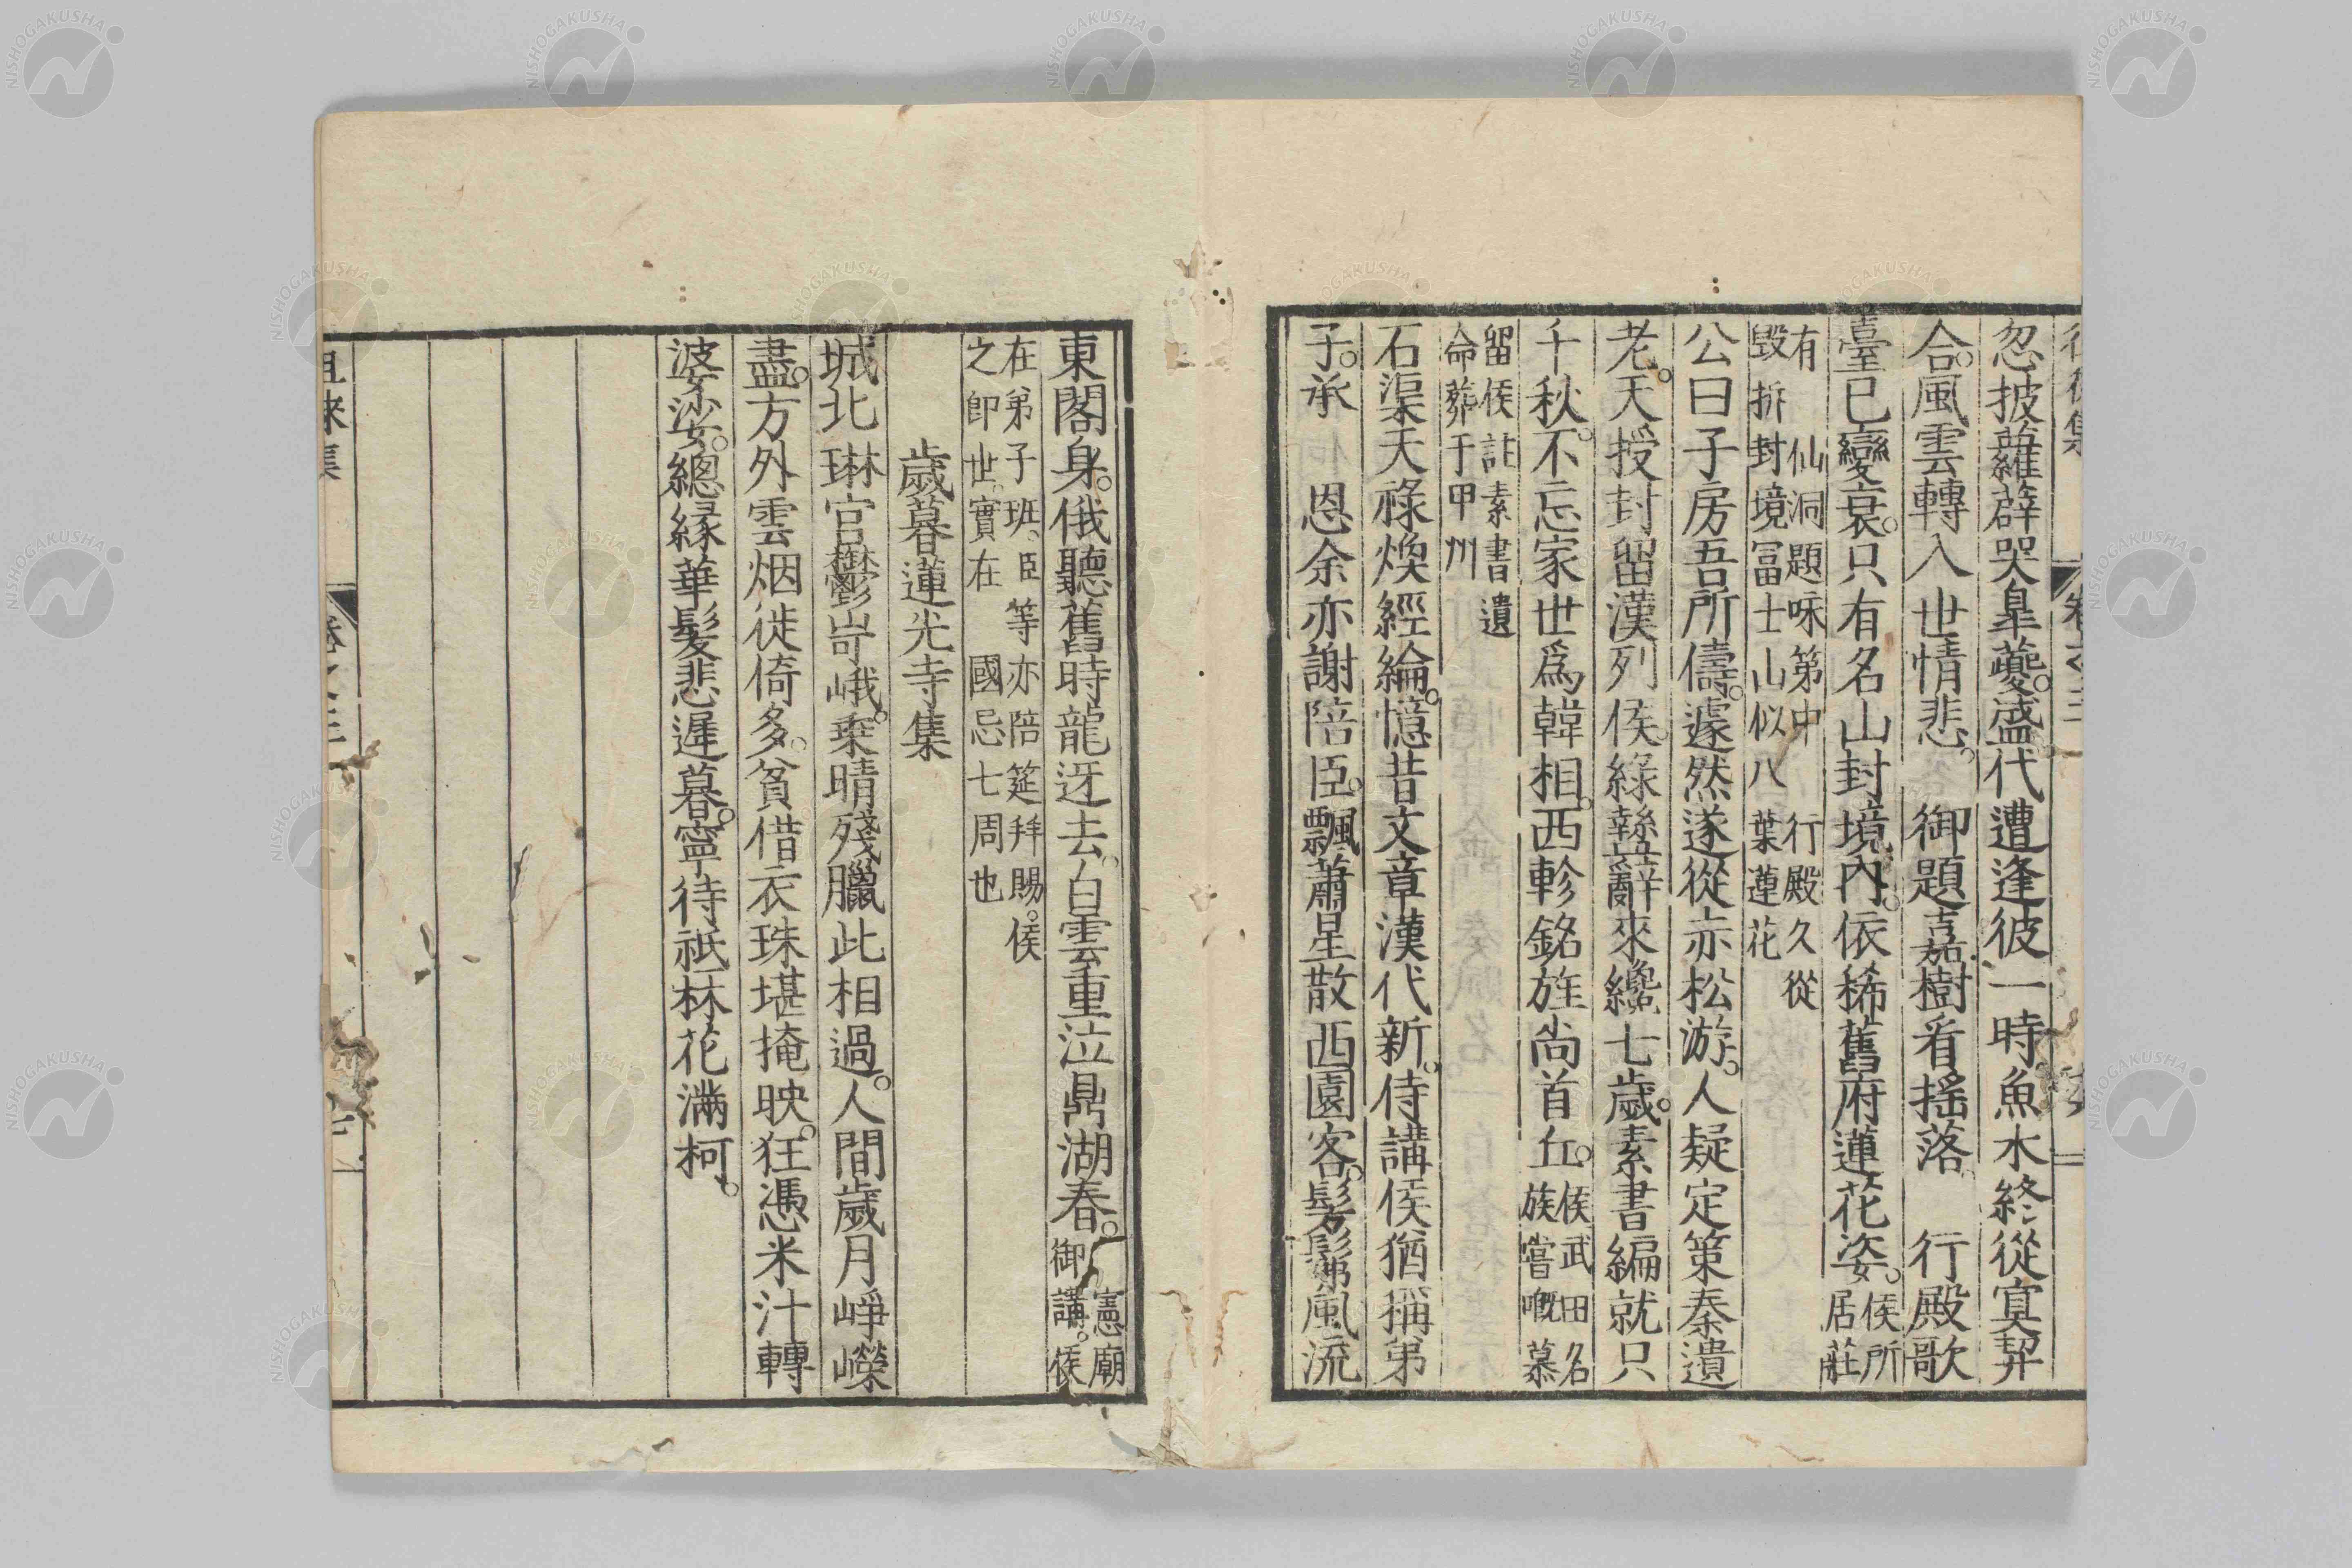 忽披蘿薜哭皐夔。盛代遭逢彼一時。魚水終從冥契
合。風雲轉入世情悲。 御題嘉樹看揺落。 行殿歌
臺已變衰。只有名山封境內。依稀舊府蓮花姿。侯所
居莊
有 仙洞題咏第中 行殿久從
毀拆封境冨士山似八葉蓮花
公曰子房吾所儔。遽然遂從赤松游。人疑定策秦遺
老。天授封留漢列侯。綠繇虀辭來纔七歲。素書編就只
千秋。不忘家世爲韓相。西軫銘旌尚首丘。侯武田名
族嘗嘅慕
留侯註素書遺
命葬于甲州
石渠天祿煥經綸。憶昔文章漢代新。侍講侯猶稱弟
子。承 恩余亦謝陪臣。飄蕭星散西園客。髣髴風流
東閣身。俄聽舊時龍迓去。白雲重泣鼎湖春。 憲廟
御講。侯
在弟子班。臣等亦陪筵拜賜。侯
之卽世。實在 國忌七周也
歲暮蓮光寺集
城北琳宮鬱岢峨。乗晴殘臘此相過。人間歲月崢嶸
盡。方外雲烟徙倚多。貧借衣珠堪掩映。狂憑米汁轉
婆娑。總緣華髮悲遲暮。寧待祇林花滿柯。